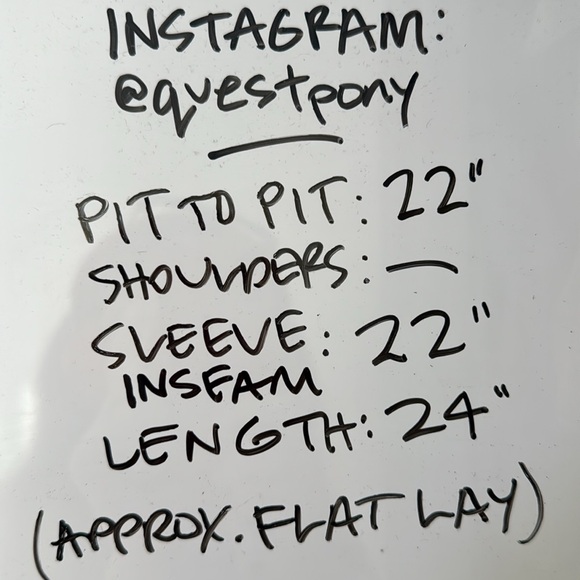 INSTAGRAM:
@questpony
PIT TO PIT: 22"
SHOULDERS: —
SLEEVE: 22"
INSEAM
LENGTH: 24"
(APPROX. FLAT LAY)